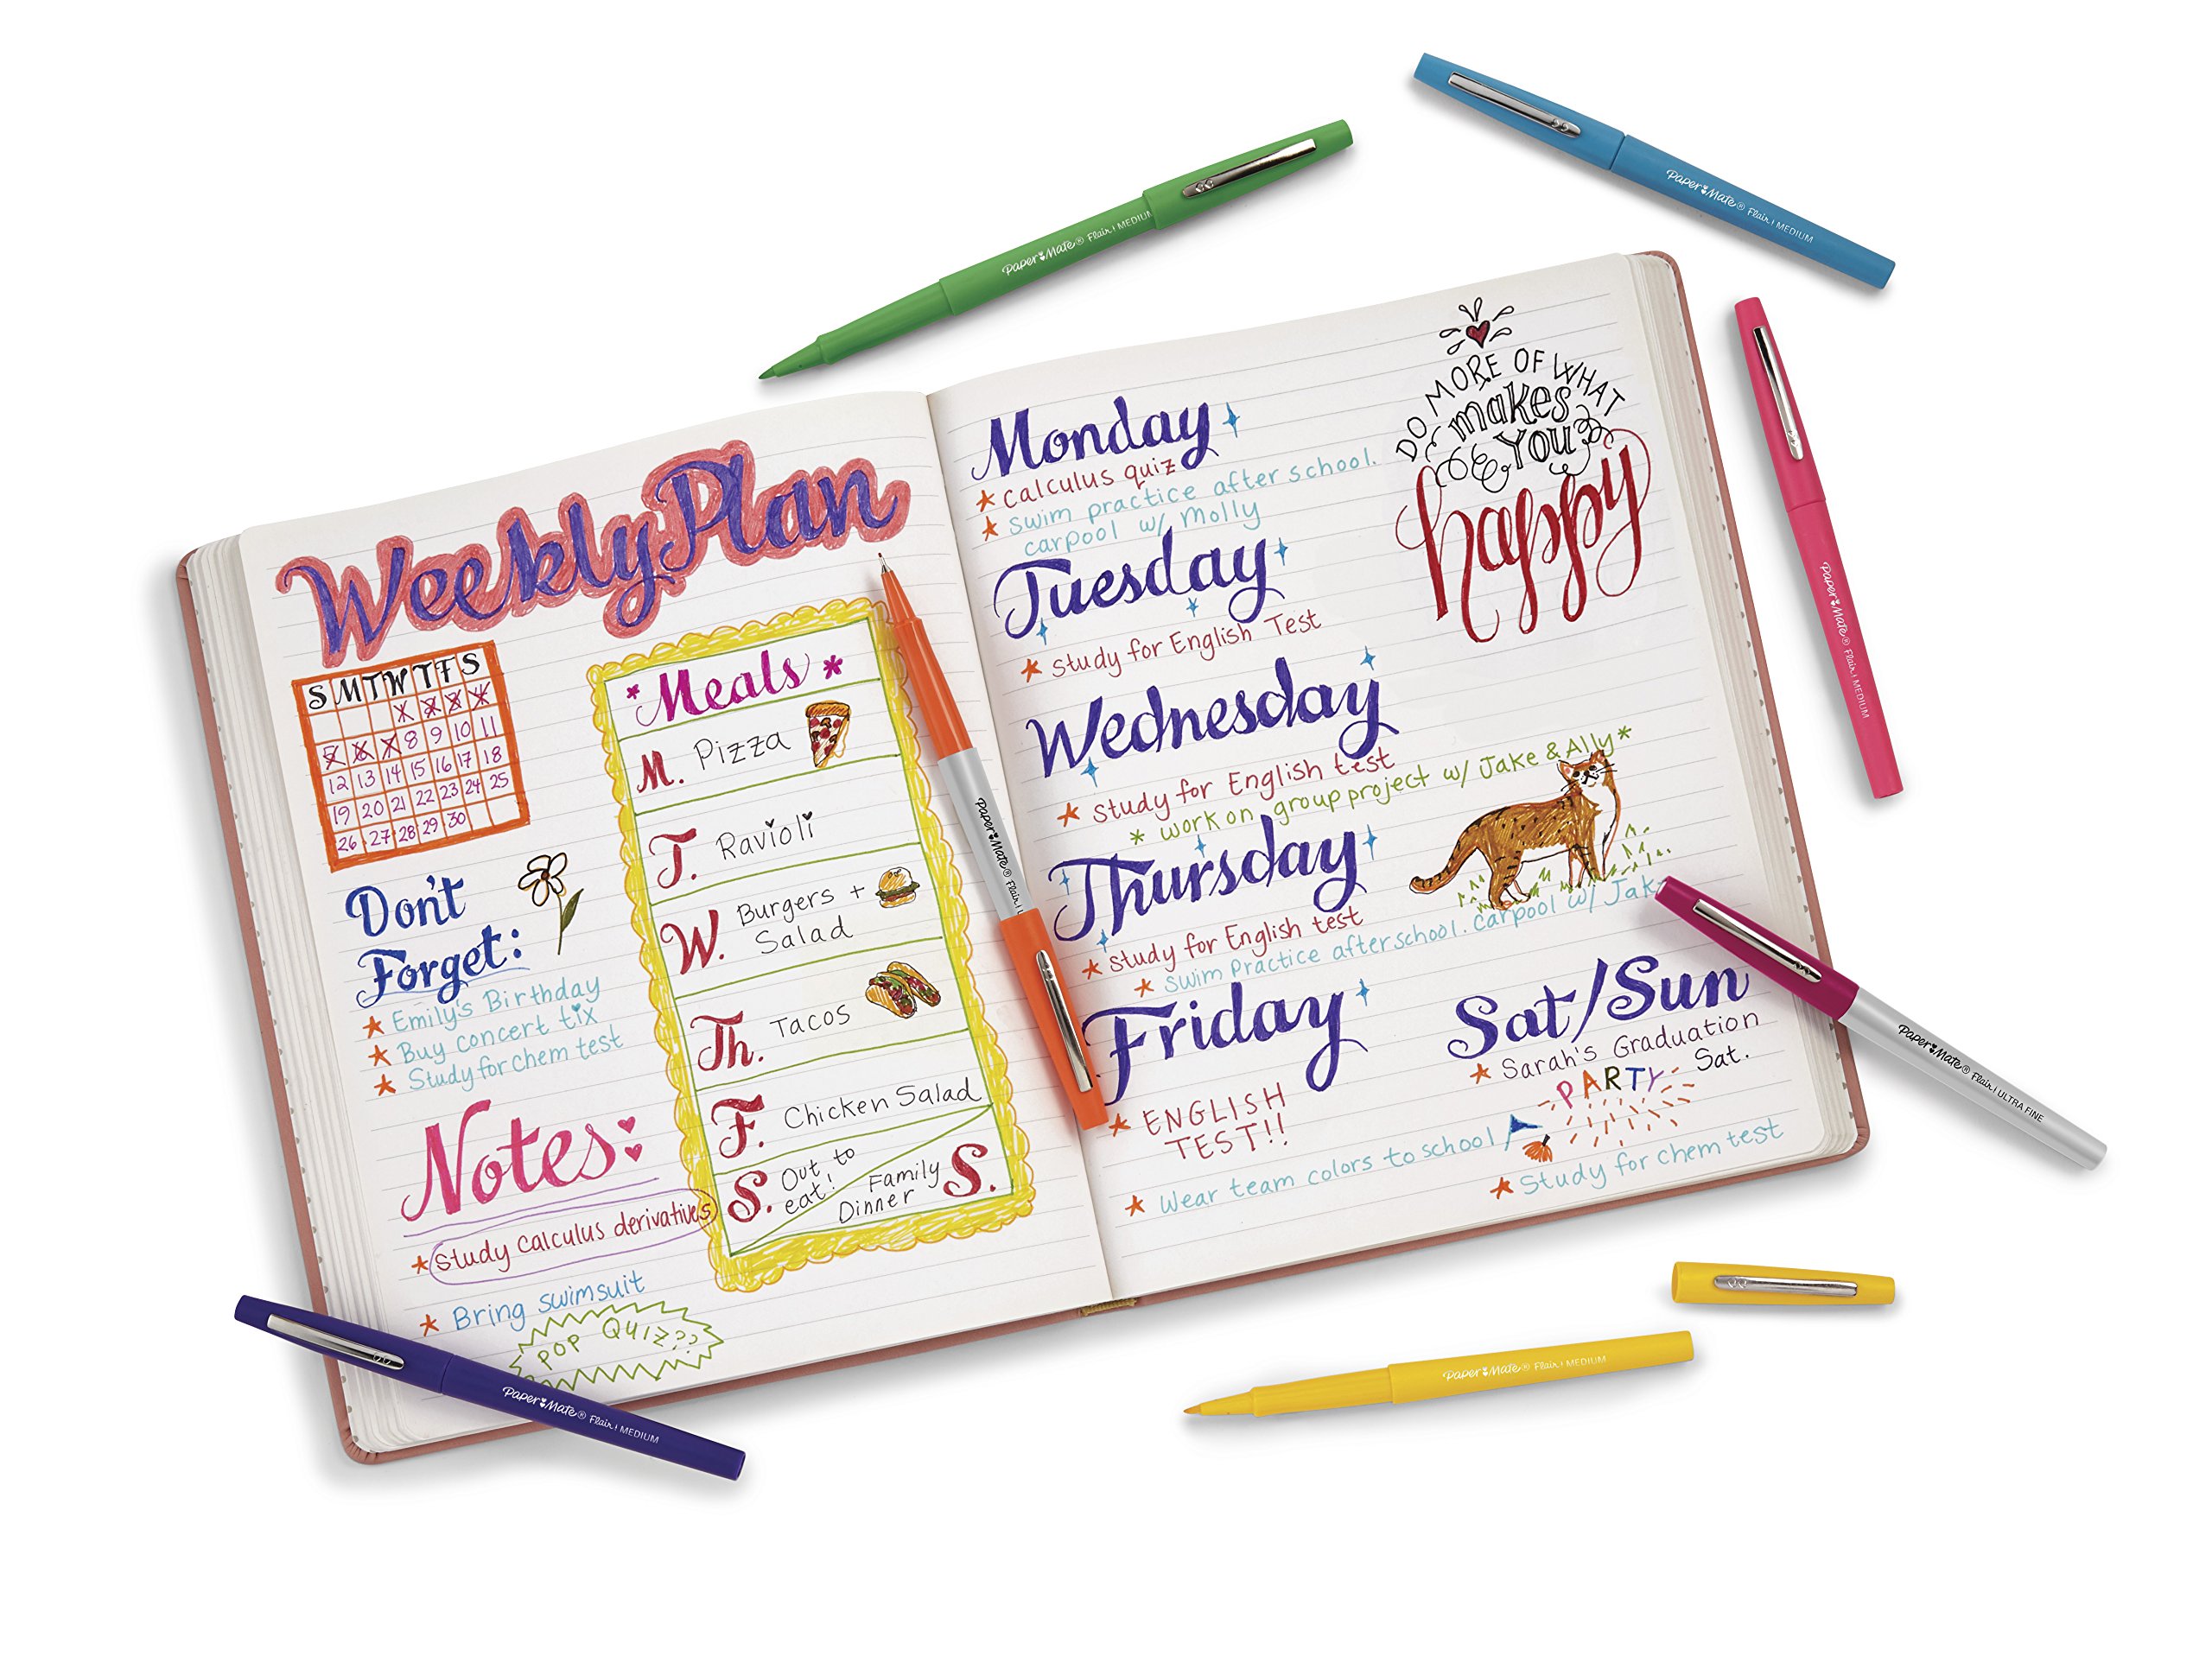 Weekly Plan
S M T W T F S
X X X X
5 6 X 8 9 10 11
12 13 14 15 16 17 18
19 20 21 22 23 24 25
26 27 28 29 30
Don't
Forget:
Emily's Birthday
Buy concert tix
Study for chem test
Notes:
Study Calculus derivatives
Bring swimsuit
POP QUIZ??
*Meals*
M. Pizza
T. Ravioli
W. Burgers +
Salad
Th. Tacos
F. Chicken Salad
S. Out to
eat!
Family
Dinner S.
Monday
calculus quiz
swim practice after school.
carpool w/ Molly
Tuesday
study for English Test
Wednesday
study for English test
* work on group project w/ Jake & Ally*
Thursday
study for English test
swim Practice after school. carpool w/ Jake
Friday
ENGLISH
TEST!!
Wear team colors to school
DO MORE OF WHAT
makes
You
happy
Sat/Sun
Sarah's Graduation
PARTY Sat.
Study for chem test
Paper Mate® Flair! MEDIUM
Paper Mate® Flair! MEDIUM
Paper Mate® Flair! MEDIUM
Paper Mate® Flair!
Paper Mate® Flair! ULTRA FINE
Paper Mate® Flair! MEDIUM
Paper Mate® Flair! MEDIUM